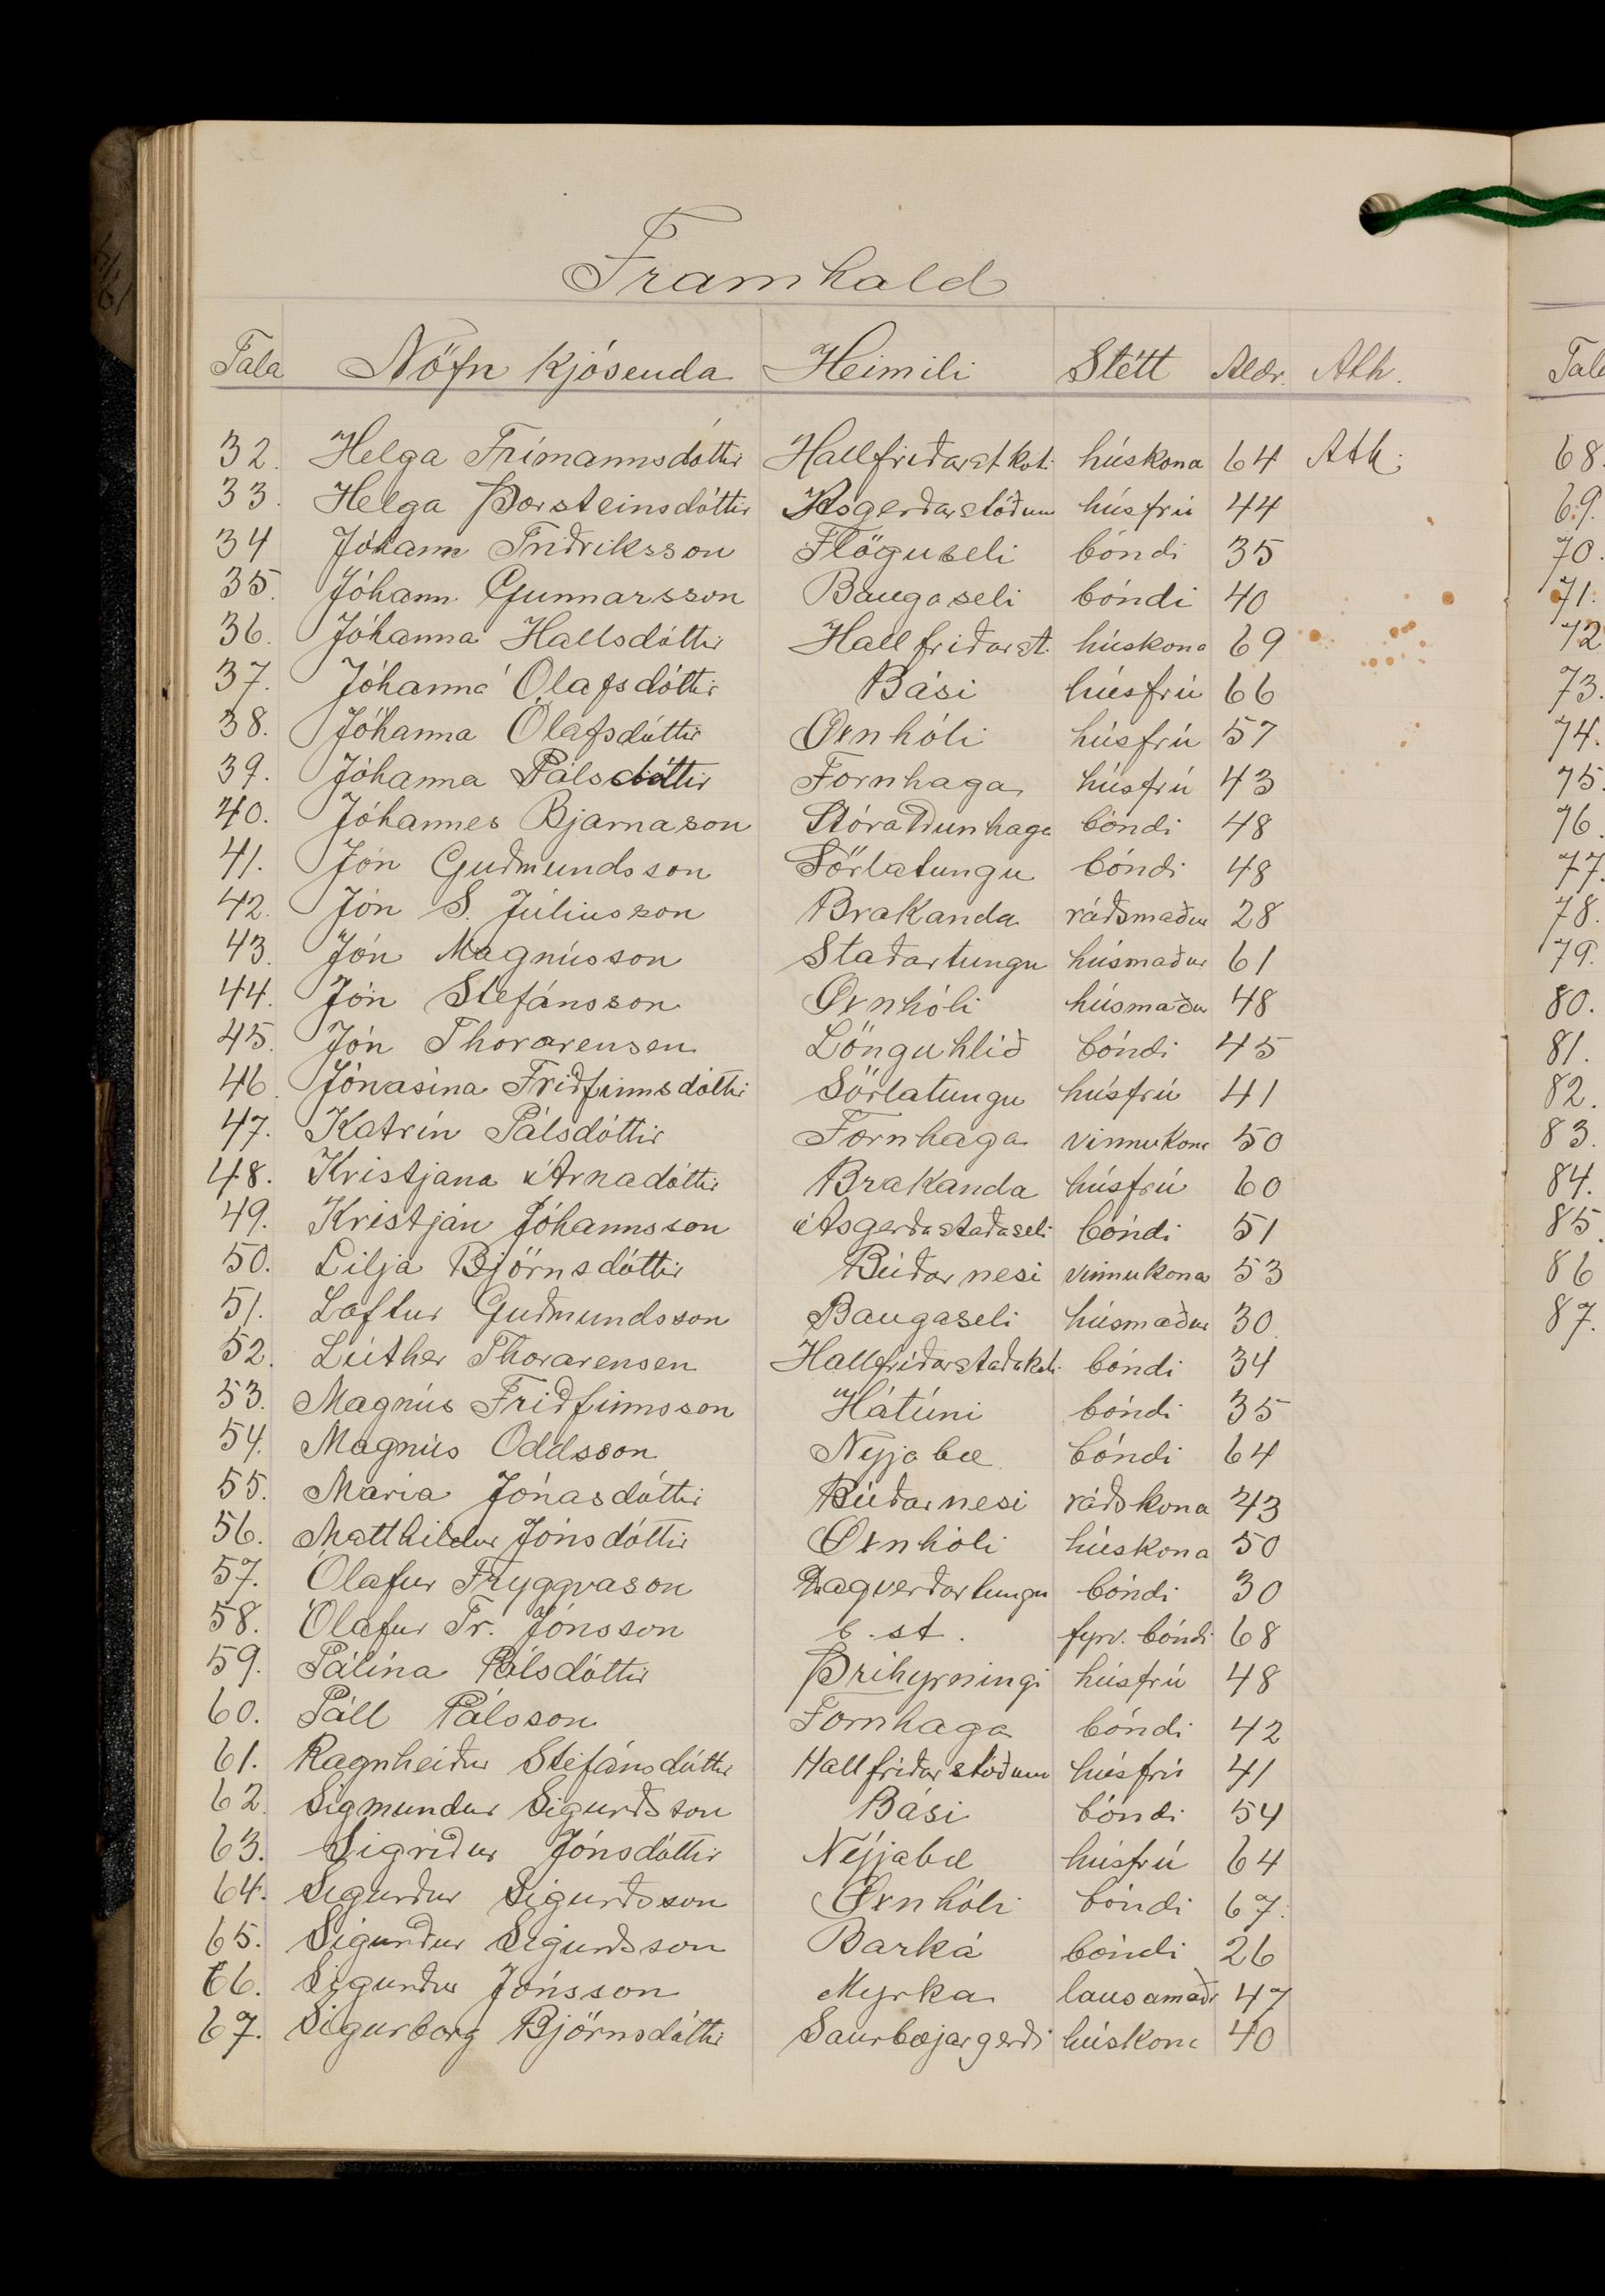 Framhald
Tala Nöfn kjósenda Heimili Stétt Aldr. Ath. Tala
32. Helga Frímannsdóttir Hallfríðarst.koti húskona 64 Ath. 68.
33. Helga Þorsteinsdóttir Ásgerðarstöðum húsfrú 44 69.
34 Jóhann Friðriksson Flöguseli bóndi 35 70.
35. Jóhann Gunnarsson Baugaseli bóndi 40 71.
36. Jóhanna Hallsdóttir Hallfríðarst. húskona 69 72
37. Jóhanna Ólafsdóttir Bási húsfrú 66 73.
38. Jóhanna Ólafsdóttir Öxnhóli húsfrú 57 74.
39. Jóhanna Pálsdóttir Fornhaga húsfrú 43 75.
40. Jóhannes Bjarnason StóraDunhaga bóndi 48 76.
41. Jón Guðmundsson Sörlatungu bóndi 48 77.
42. Jón S. Júlíusson Brakanda ráðsmaður 28 78.
43. Jón Magnússon Staðartungu húsmaður 61 79.
44. Jón Stefánsson Öxnhóli húsmaður 48 80.
45. Jón Thorarensen Lönguhlíð bóndi 45 81.
46. Jónasína Friðfinnsdóttir Sörlatungu húsfrú 41 82.
47. Katrín Pálsdóttir Fornhaga vinnukona 50 83.
48. Kristjana Árnadóttir Brakanda húsfrú 60 84.
49. Kristján Jóhannsson Ásgerðastaðaseli bóndi 51 85.
50. Lilja Björnsdóttir Búðarnesi vinnukona 53 86
51. Loftur Guðmundsson Baugaseli húsmaður 30 87.
52. Lúther Thorarensen Hallfríðarstaðakoti bóndi 34
53. Magnús Friðfinnsson Hátúni bóndi 35
54. Magnús Oddsson Nýjabæ bóndi 64
55. María Jónasdóttir Búðarnesi ráðskona 43
56. Matthildur Jónsdóttir Öxnhóli húskona 50
57. Ólafur Tryggvason Dagverðartungu bóndi 30
58. Ólafur Tr. Jónsson s.st. fyrv. bóndi 68
59. Pálína Pálsdóttir Þríhyrningi húsfrú 48
60. Páll Pálsson Fornhaga bóndi 42
61. Ragnheiður Stefánsdóttir Hallfríðarstöðum húsfrú 41
62. Sigmundur Sigurðsson Bási bóndi 54
63. Sigríður Jónsdóttir Nýjabæ húsfrú 64
64. Sigurður Sigurðsson Öxnhóli bóndi 67.
65. Sigurður Sigurðsson Barká bóndi 26
66. Sigurður Jónsson Myrká lausamaðr 47
67. Sigurborg Björnsdóttir Saurbæjargerði húskona 40